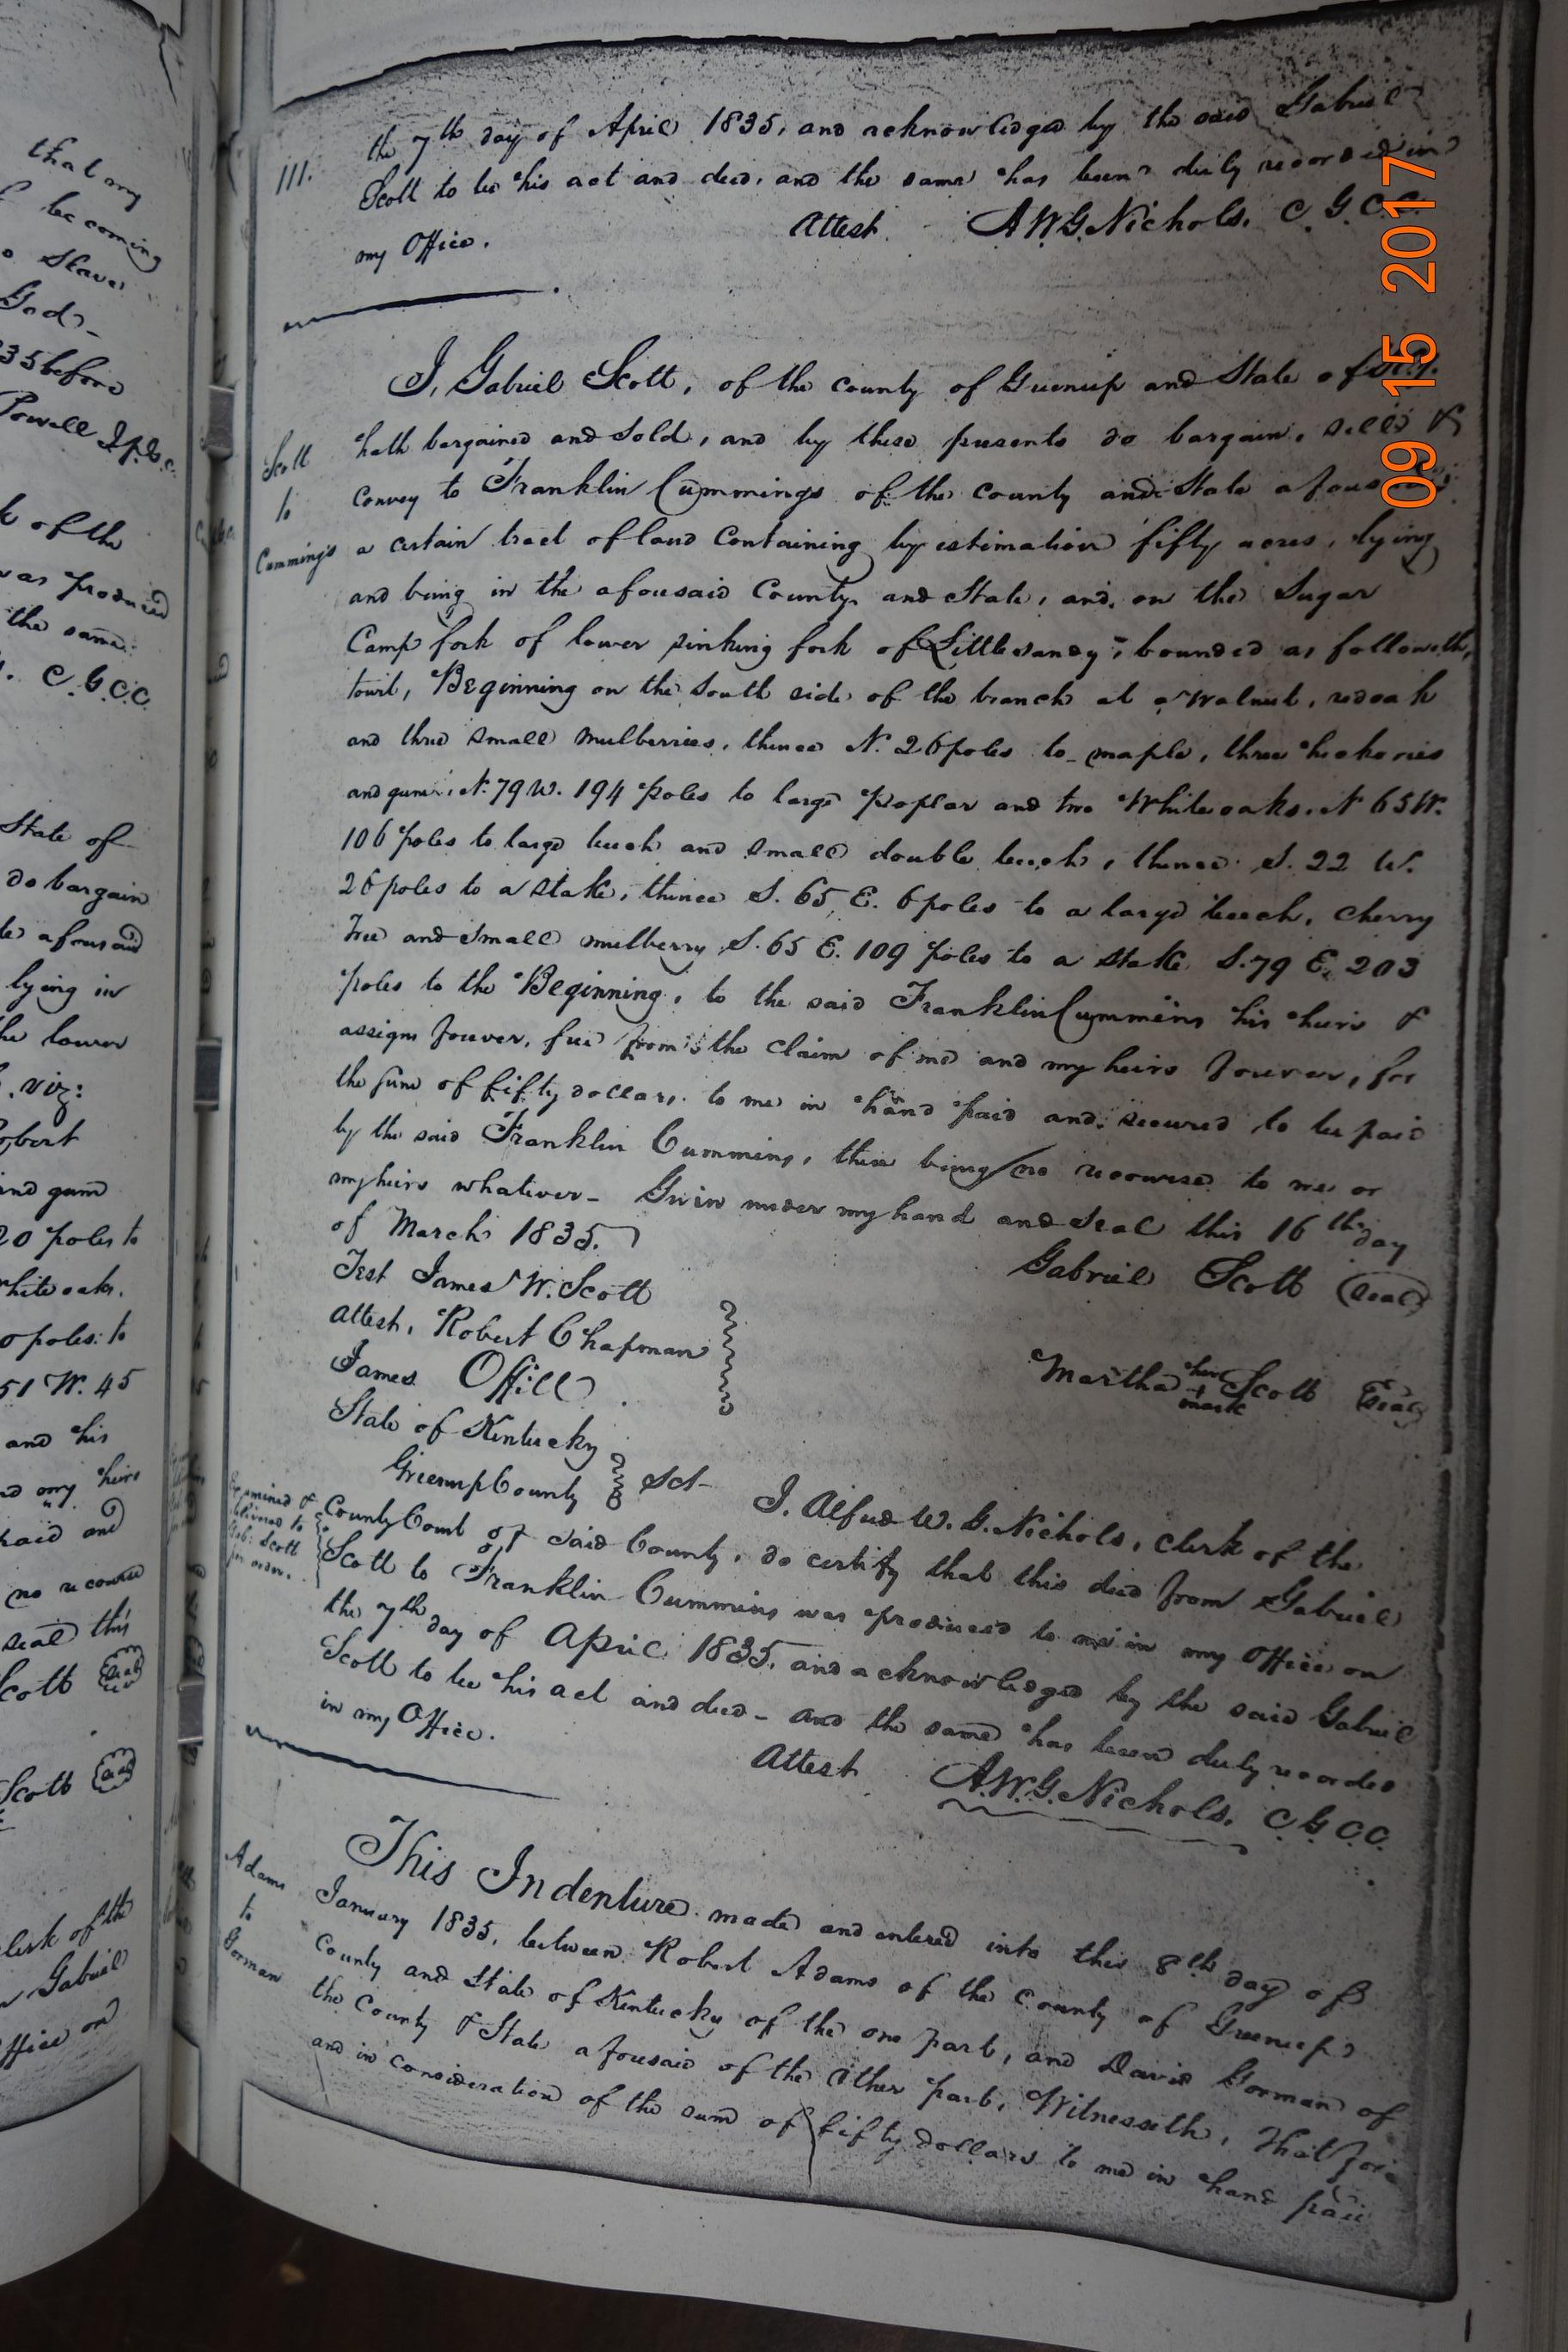 that my
becoming
Slave
God-
35 before
Powell J.P.G.C.
of the
was produced
the same
C.G.C.C.
State of
do bargain
aforesaid
lying in
the lower
viz:
Robert
and gum
20 poles to
white oaks.
poles: to
51 W. 45
and his
and my heirs
paid and
no recourse
seal this
Scott Seal
Scott Seal
Clerk of the
Gabriel
Office on
111.
the 7th day of April 1835, and acknowledged by the said Gabriel
Scott to be his act and deed, and the same has been duly recorded in
my Office.
Attest A.W.G. Nichols. C.G.C.C.
Scott
to
Cummings
I, Gabriel Scott, of the county of Greenup and State of Ky.
hath bargained and sold, and by these presents do bargain, sell &
convey to Franklin Cummings of the county and State aforesaid
a certain tract of land containing by estimation fifty acres, lying
and being in the aforesaid County and State, and on the Sugar
Camp fork of lower sinking fork of Little sandy, bounded as followeth,
towit, Beginning on the South side of the branch at a Walnut, redoak
and three small mulberries, thence N. 26 poles to maple, three hickories
and gum, N. 79 W. 194 poles to large poplar and two White oaks. N 65 W.
106 poles to large beech and small double beech, thence S. 22 W.
26 poles to a stake, thence S. 65 E. 6 poles to a large beech, cherry
Tree and small mulberry S. 65 E. 109 poles to a stake S. 79 E. 203
poles to the Beginning, to the said Franklin Cummins his heirs &
assigns forever, free from the claim of me and my heirs forever, for
the sum of fifty dollars to me in hand paid and secured to be paid
by the said Franklin Cummins, there being no recourse to me or
my heirs whatever- Given under my hand and seal this 16th day
of March 1835.
Test James W. Scott
Gabriel Scott (Seal)
Attest, Robert Chapman
James Offill
Martha her mark Scott Seal
State of Kentucky
Greenup County Sct-
Examined &
delivered to
Gab: Scott
for order.
I. Alfred W. G. Nichols, clerk of the
County Court of said County, do certify that this deed from Gabriel
Scott to Franklin Cummins was produced to me in my Office on
the 7th day of April 1835. and acknowledged by the said Gabriel
Scott to be his act and deed- and the same has been duly recorded
in my Office.
Attest A.W.G. Nichols. C.G.C.C.
Adams
to
Gorman
This Indenture made and entered into this 8th day of
January 1835, between Robert Adams of the county of Greenup
County and State of Kentucky of the one part, and David Gorman of
the County & State aforesaid of the other part, Witnesseth, That for
and in consideration of the sum of fifty dollars to me in hand paid
09 15 2017